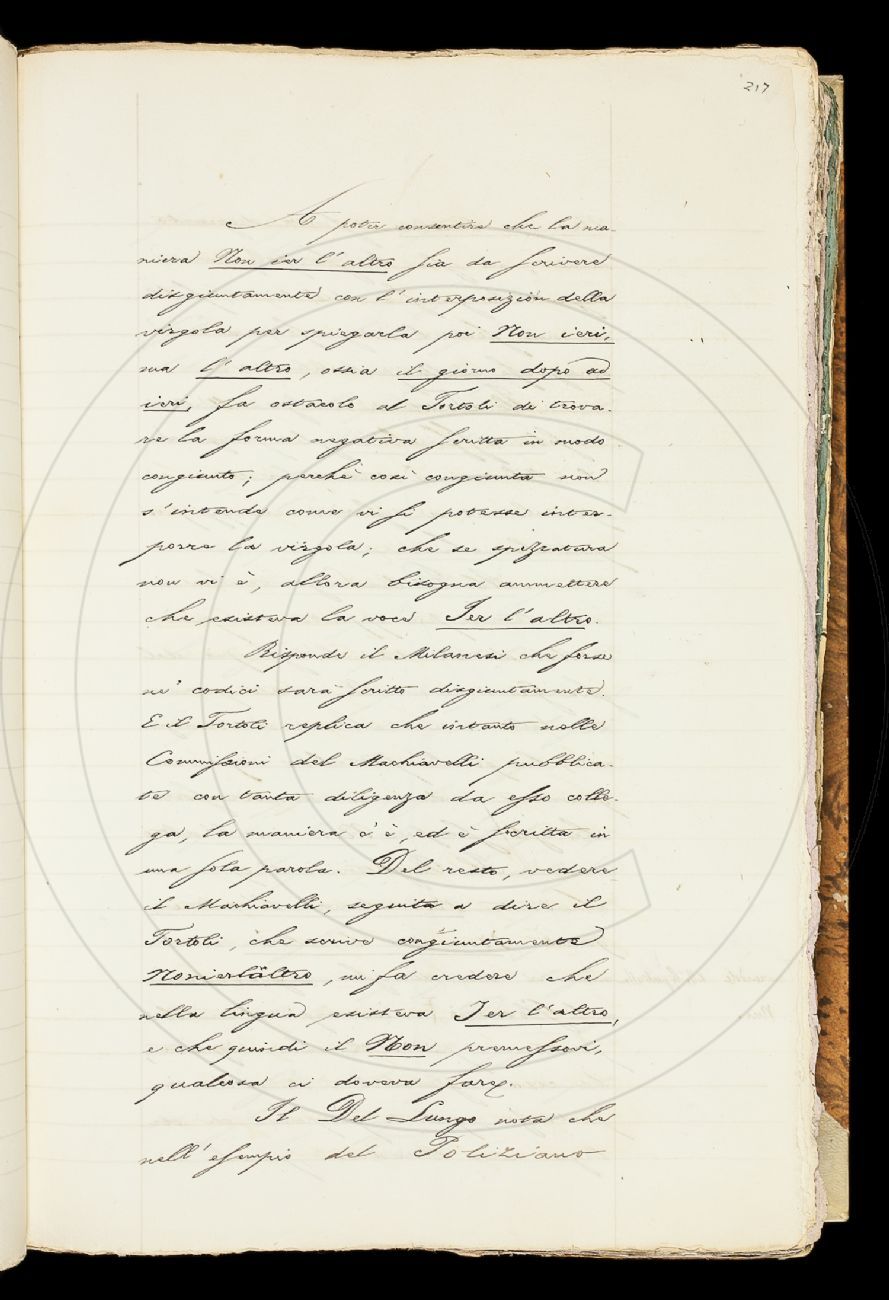 217
A poter consentire che la ma-
niera Non ier l'altro sia da scrivere
disgiuntamente con l'interposizion della
virgola per spiegarla poi Non ieri,
ma l'altro, ossia il giorno dopo ad
ieri, fa ostacolo al Tortoli di trova-
re la forma negativa scritta in modo
congiunto; perchè così congiunta non
s'intende come vi si potesse inter-
porre la virgola; che se spezzatura
non vi è, allora bisogna ammettere
che esisteva la voce Ier l'altro.
Risponde il Milanesi che forse
ne' codici sarà scritto disgiuntamente.
E il Tortoli replica che intanto nelle
Commissioni del Machiavelli pubblica-
te con tanta diligenza da esso colle-
ga, la maniera c'è, ed è scritta in
una sola parola. Del resto, vedere
il Machiavelli, seguita a dire il
Tortoli, che scrive congiuntamente
Nonierlaltro, mi fa credere che
nella lingua esisteva Ier l'altro,
e che quindi il Non premessovi,
qualcosa ci doveva fare.
Il Del Lungo nota che
nell'esempio del Poliziano